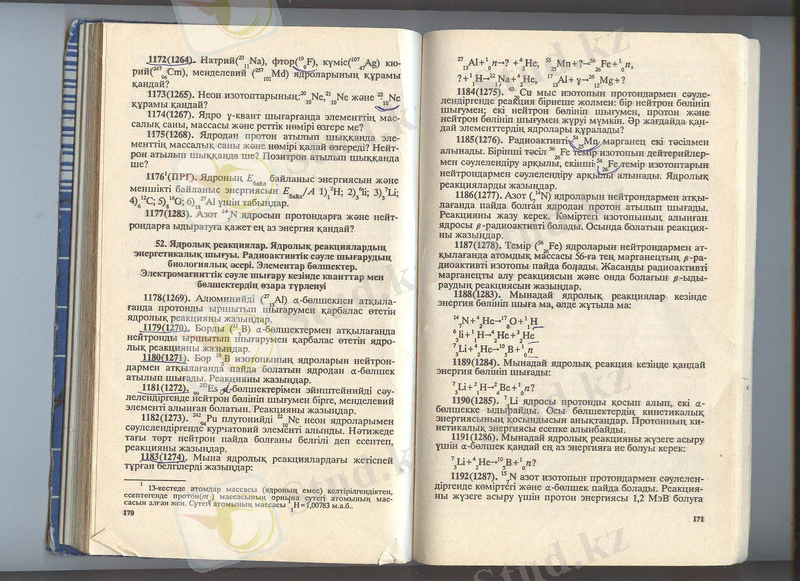 1172(1264). Натрий(²³₁₁Na), фтор(¹⁹₉F), күміс(¹⁰⁷₄₇Ag) кю-
рий(²⁴⁷₉₆Cm), менделевий (²⁵⁷₁₀₁Md) ядроларының құрамы
қандай?
1173(1265). Неон изотоптарының:²⁰₁₀Ne, ²¹₁₀Ne және ²²₁₀Ne
құрамы қандай?
1174(1267). Ядро γ-квант шығарғанда элементтің мас-
салық саны, массасы және реттік нөмірі өзгере ме?
1175(1268). Ядродан протон атылып шыққанда эле-
менттің массалық саны және нөмірі қалай өзгереді? Нейт-
рон атылып шыққанда ше? Позитрон атылып шыққанда
ше?
1176¹(ПРГ). Ядроның Eбайл байланыс энергиясын және
меншікті байланыс энергиясын Eбайл/A 1)²₁H; 2)⁶₃li; 3)⁷₃Li;
4)¹²₆C; 5)¹⁶₈O; 6) ²⁷Al үшін табыңдар.
1177(1283). Азот ¹⁴₇N ядросын протондарға және нейт-
рондарға ыдыратуға қажет ең аз энергия қандай?
52. Ядролық реакциялар. Ядролық реакциялардың
энергетикалық шығуы. Радиоактивтік сәуле шығарудың
биологиялық әсері. Элементар бөлшектер.
Электромагниттік сәуле шығару кезінде кванттар мен
бөлшектердің өзара түрленуі
1178(1269). Алюминийді (²⁷₁₃Al) α-бөлшекпен атқыла-
ғанда протонды ыршытып шығарумен қарбалас өтетін
ядролық реакцияны жазыңдар.
1179(1270). Борды (¹¹₅B) α-бөлшектермен атқылағанда
нейтронды ыршытып шығарумен қарбалас өтетін ядро-
лық реакцияны жазыңдар.
1180(1271). Бор ¹⁰₅B изотопының ядроларын нейтрон-
дармен атқылағанда пайда болатын ядродан α-бөлшек
атылып шығады. Реакцияны жазыңдар.
1181(1272). ²⁵³Es α-бөлшектерімен эйнштейнийді сәу-
лелендіргенде нейтрон бөлініп шығумен бірге, менделевий
элементі алынған болатын. Реакцияны жазыңдар.
1182(1273). ²⁴²₉₄Pu плутонийді ²²₁₀Ne неон ядроларымен
сәулелендіргенде курчатовий элементі алынды. Нәтижеде
тағы төрт нейтрон пайда болғаны белгілі деп есептеп,
реакцияны жазыңдар.
1183(1274). Мына ядролық реакциялардағы жетіспей
тұрған белгілерді жазыңдар:
¹ 13-кестеде атомдар массасы (ядроның емес) келтірілгендіктен,
есептегенде протон(m) массасының орнына сутегі атомының мас-
сасын алған жөн. Сутегі атомының массасы ¹₁H=1,00783 м.а.б..
170
²⁷₁₃Al+¹₀n→? +⁴₂He, ⁵⁵₂₅Mn+?→⁵⁶₂₆Fe+¹₀n,
?+¹₁H→²²₁₁Na+⁴₂He, ²⁷₁₃Al+γ→²⁶₁₂Mg+?
1184(1275). ⁶³₂₉Cu мыс изотопын протондармен сәуле-
лендіргенде реакция бірнеше жолмен: бір нейтрон бөлініп
шығумен; екі нейтрон бөлініп шығумен, протон және
нейтрон бөлініп шығумен жүруі мүмкін. Әр жағдайда қан-
дай элементтердің ядролары құралады?
1185(1276). Радиоактивті ⁵⁴₂₅Mn марганец екі тәсілмен
алынады. Бірінші тәсіл ⁵⁶₂₆Fe темір изотопын дейтерийлер-
мен сәулелендіру арқылы, екінші ⁵⁴₂₆Fe темір изотоптарын
нейтрондармен сәулелендіру арқылы алынады. Ядролық
реакцияларды жазыңдар.
1186(1277). Азот (¹⁴₇N) ядроларын нейтрондармен атқы-
лағанда пайда болған ядродан протон атылып шығады.
Реакцияны жазу керек. Көміртегі изотопының алынған
ядросы β-радиоактивті болады. Осында болатын реакция-
ны жазыңдар.
1187(1278). Темір (⁵⁶₂₆Fe) ядроларын нейтрондармен ат-
қылағанда атомдық массасы 56-ға тең марганецтың β-ра-
диоактивті изотопы пайда болады. Жасанды радиоактивті
марганецты алу реакциясын және онда болатын β-ыды-
раудың реакциясын жазыңдар.
1188(1283). Мынадай ядролық реакциялар кезінде
энергия бөлініп шыға ма, әлде жұтыла ма:
¹⁴₇N+⁴₂He→¹⁷₈O+¹₁H
⁶₃li+¹₁H→⁴₂He+³₂He
⁷₃Li+⁴₂He→¹⁰₅B+¹₀n
1189(1284). Мынадай ядролық реакция кезінде қандай
энергия бөлініп шығады:
⁷₃Li+²₁H→⁸₄Be+¹₀n?
1190(1285). ⁷₃Li ядросы протонды қосып алып, екі α-
бөлшекке ыдырайды. Осы бөлшектердің кинетикалық
энергиясының қосындысын анықтаңдар. Протонның ки-
нетикалық энергиясы есепке алынбайды.
1191(1286). Мынадай ядролық реакцияны жүзеге асыру
үшін α-бөлшек қандай ең аз энергияға ие болуы керек:
⁷₃Li+⁴₂He→¹⁰₅B+¹₀n?
1192(1287). ¹⁵₇N азот изотопын протондармен сәулелен-
діргенде көміртегі және α-бөлшек пайда болады. Реакция-
ны жүзеге асыру үшін протон энергиясы 1,2 МэВ болуға
171
Stud.kz